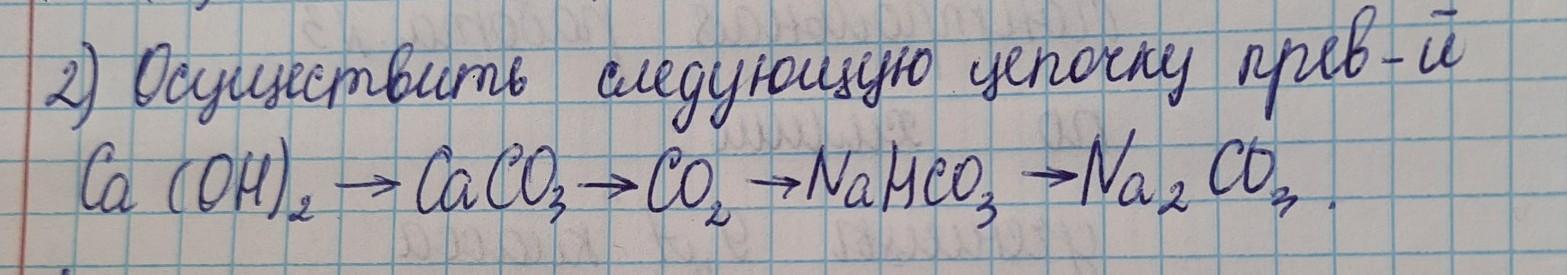 2) Осуществить следующую цепочку прев-й
Ca(OH)₂ → CaCO₃ → CO₂ → NaHCO₃ → Na₂CO₃.